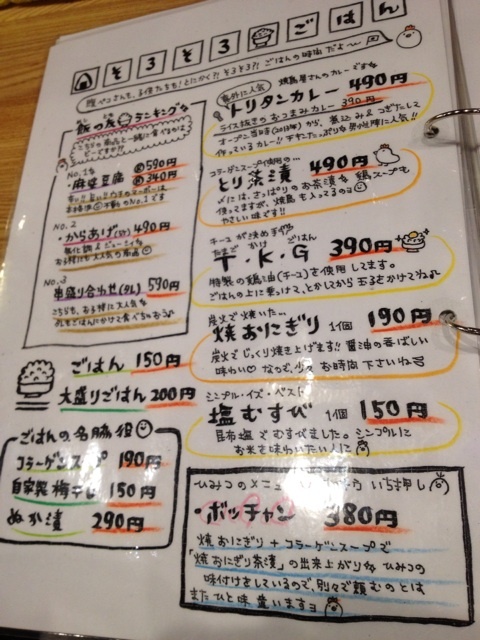 そろそろごはん
ごはんの時間だよ〜
飯の友ランキング
No.1
・麻婆豆腐 590円
340円
No.2
からあげ 490円
お子様にも大人気の商品
No.3
串盛り合わせ(タレ) 590円
こちらも、お子様に大人気な
ごはん 150円
大盛りごはん 200円
ごはんの名脇役
コラーゲンスープ 190円
自家製梅干し 150円
ぬか漬 290円
意外に人気
焼鳥屋さんのカレーです
トリタンカレー 490円
ライス抜きのおつまみカレー 390円
コラーゲンスープ使用の…
とり茶漬 490円
〆には、さっぱりのお茶漬を 鶏スープも
使ってますが、焼鳥も入ってるの
やさしい味です!!
チーズが決め手
たまご かけ ごはん
T・K・G 390円
ごはんの上に乗っけて、とかしてから玉子をかけてね♪
炭火で焼いた…
焼おにぎり 1個 190円
炭火でじっくり焼き上げます!! 醤油の香ばしい
味わい♡ なので、少々お時間下さいね
シンプル・イズ・ベスト
塩むすび 1個 150円
昆布塩でむすびました。シンプルに
お米を味わいたい人に
ひみつのメニュー いち押し
・ボッチャン 380円
焼おにぎり+コラーゲンスープで
「焼おにぎり茶漬」の出来上がり ひみつの
味付けをしているので、別々で頼むのとは
またひと味違いますョ